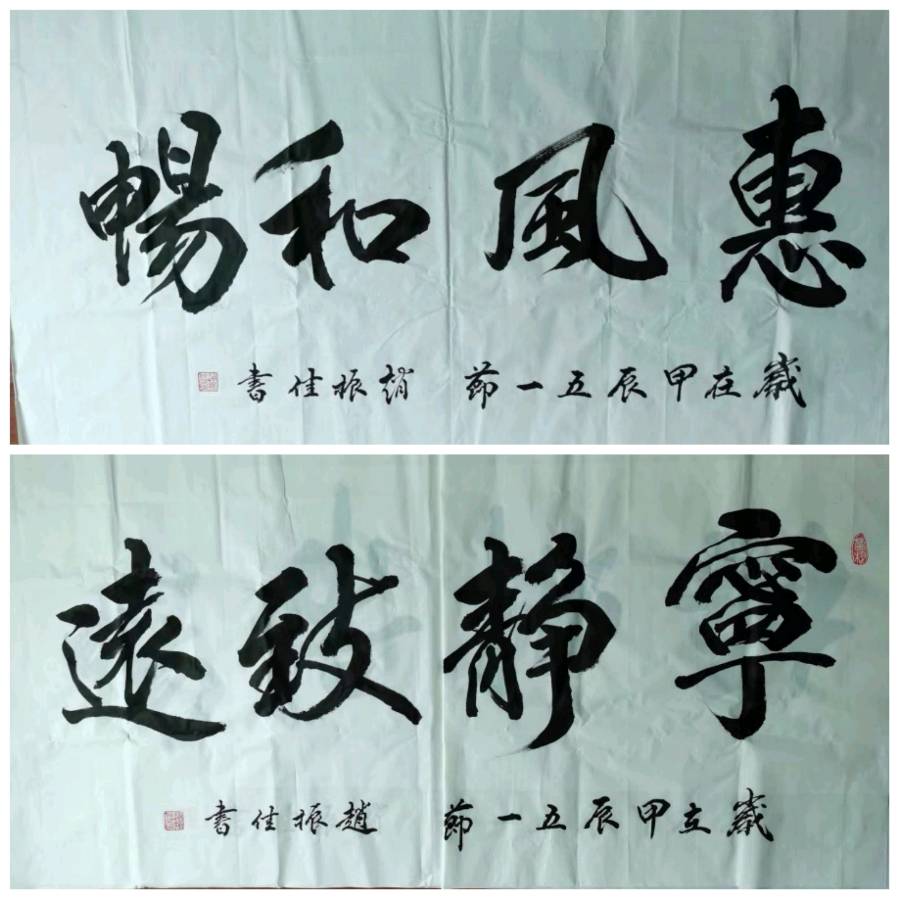 惠風和暢
歲在甲辰五一節 趙振佳書
寧靜致遠
歲在甲辰五一節 趙振佳書